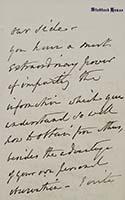 Stafford House
our side –
you have a most
extraordinary power
of imparting the
information which you
understand so well
how to obtain from others,
besides the advantage
of your own personal
observation – I write